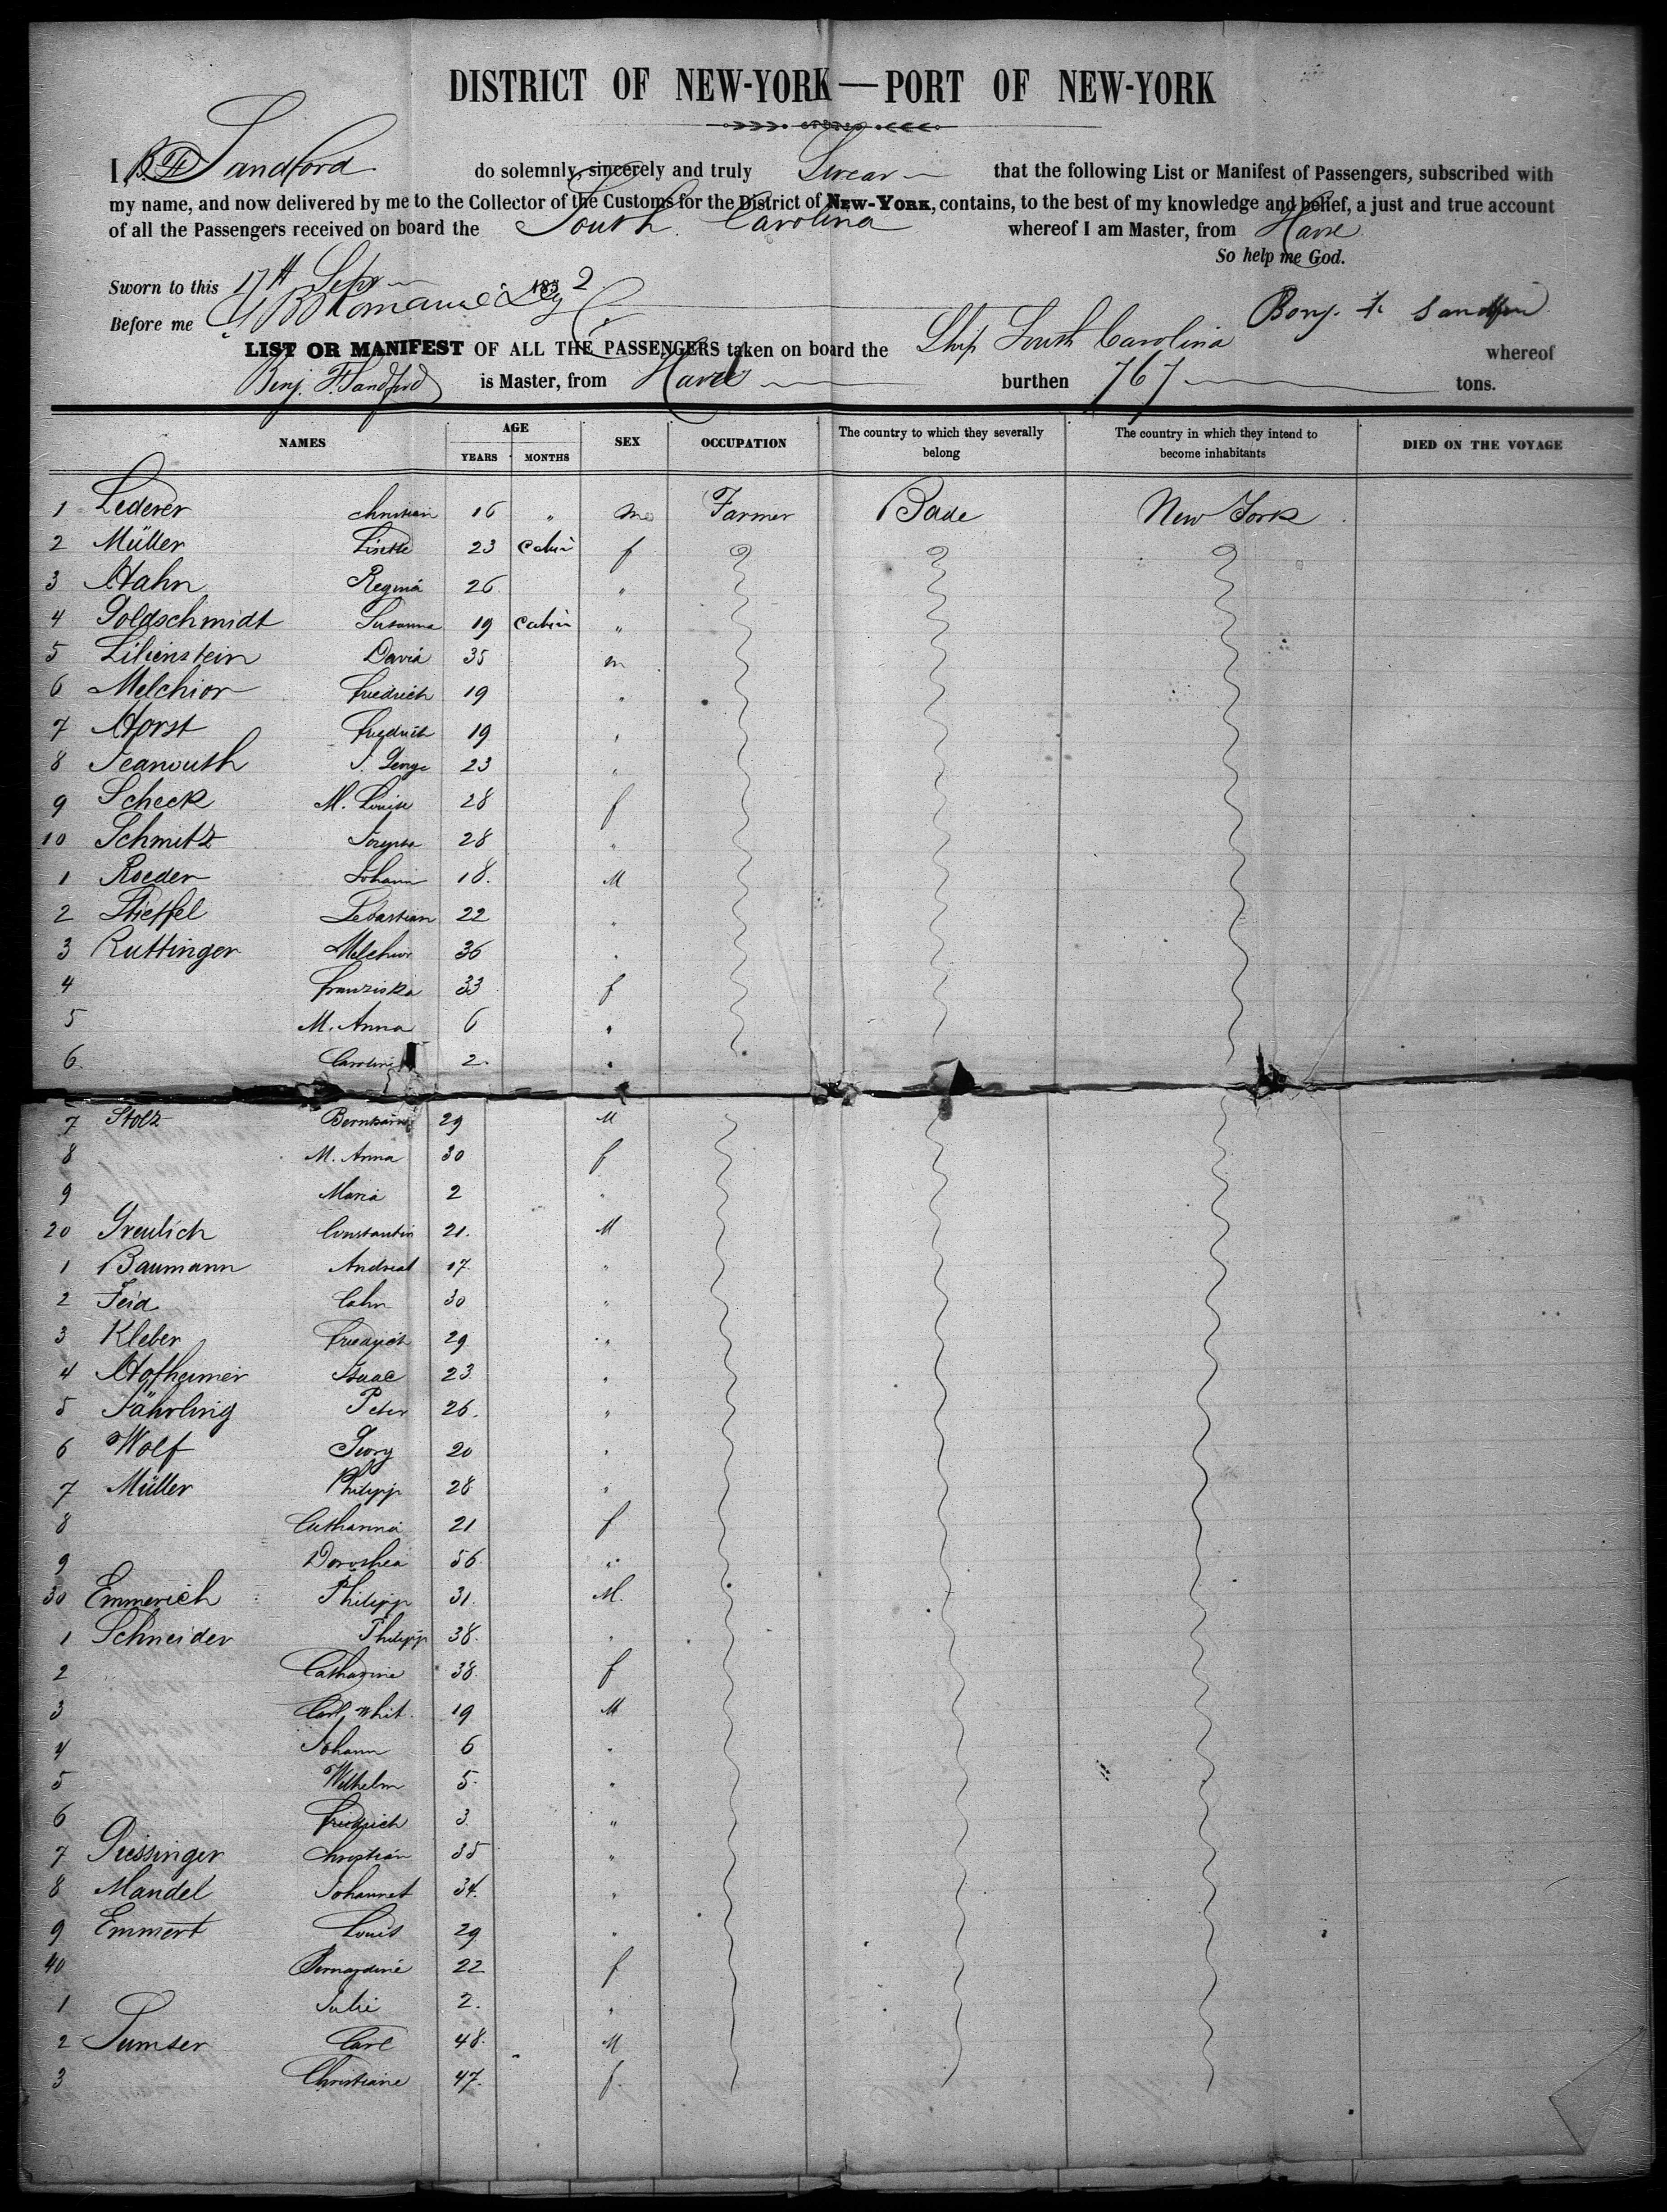 DISTRICT OF NEW-YORK—PORT OF NEW-YORK
I, B. F. Sandford do solemnly, sincerely and truly Swear that the following List or Manifest of Passengers, subscribed with
my name, and now delivered by me to the Collector of the Customs for the District of NEW-YORK, contains, to the best of my knowledge and belief, a just and true account
of all the Passengers received on board the South Carolina whereof I am Master, from Havre
So help me God.
Sworn to this 17th Sepr 1852
Before me
Benj. F. Sandford
LIST OR MANIFEST OF ALL THE PASSENGERS taken on board the Ship South Carolina whereof
Benj. F. Sandford is Master, from Havre burthen 767 tons.
NAMES AGE YEARS MONTHS SEX OCCUPATION The country to which they severally belong The country in which they intend to become inhabitants DIED ON THE VOYAGE
1 Lederer Christian 16 " m Farmer Bade New York
2 Müller Lisette 23 Cabin f
3 Hahn Regina 26 "
4 Goldschmidt Susanna 19 Cabin "
5 Lilienstein David 35 m
6 Melchior Friedrich 19 "
7 Horst Friedrich 19 "
8 J. George 23 "
9 Scheck M. Louise 28 f
10 Schmitz Josepha 28 "
1 Roeder Johann 18. M
2 Stieffel Sebastian 22 "
3 Ruttinger Melchior 36 "
4 Franziska 33 f
5 M. Anna 6 "
6. Caroline 2. "
7 Stolz Bernhard 29 M
8 M. Anna 30 f
9 Maria 2 "
20 Greulich Constantin 21. M
1 Baumann Andreas 17. "
2 Feid 30 "
3 Kleber Friedrich 29 "
4 Hofheimer Isaac 23 "
5 Fährling Peter 26. "
6 Wolf Georg 20 "
7 Müller Philipp 28 "
8 Catharina 21 f
9 Dorothea 56. "
30 Emmerich Philipp 31. M.
1 Schneider Philipp 38. "
2 Catharine 38. f
3 Carl 19 M
4 Johann 6 "
5 Wilhelm 5. "
6 Friedrich 3 "
7 Giessinger Christian 35 "
8 Mandel Johannes 34. "
9 Emmert Louis 29 "
40 Bernardine 22 f
1 Julie 2. "
2 Sumser Carl 48. M
3 Christiane 47. f.